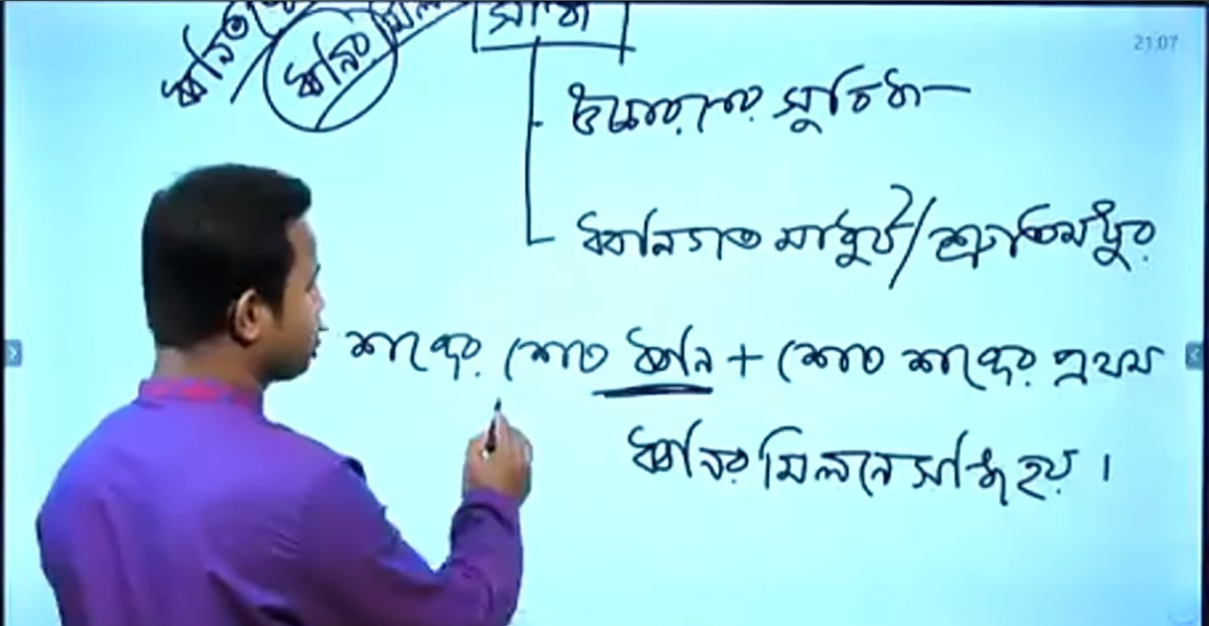 ধ্বনিতে ধ্বনির মিলন
সন্ধি
21:07
উচ্চারণের সুবিধা
ধ্বনিগত মাধুর্য/শ্রুতিমধুর
শব্দের শেষ ধ্বনি + শেষ শব্দের প্রথম
ধ্বনির মিলনে সন্ধি হয়।